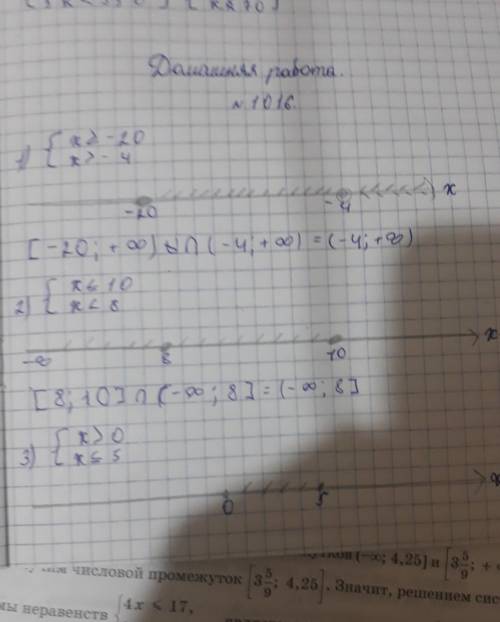 Домашняя работа.
№1016.
1) { x ≥ -20
x > -4
-20 -4 x
[-20; +∞) ∩ (-4; +∞) = (-4; +∞)
2) { x ≤ 10
x < 8
-∞ 8 10 x
[8; 10] ∩ (-∞; 8] = (-∞; 8]
3) { x > 0
x ≤ 5
0 5 x
(-∞; 4,25] и [3 5/9; +
числовой промежуток [3 5/9; 4,25]. Значит, решением сис
мы неравенств { 4x ≤ 17,